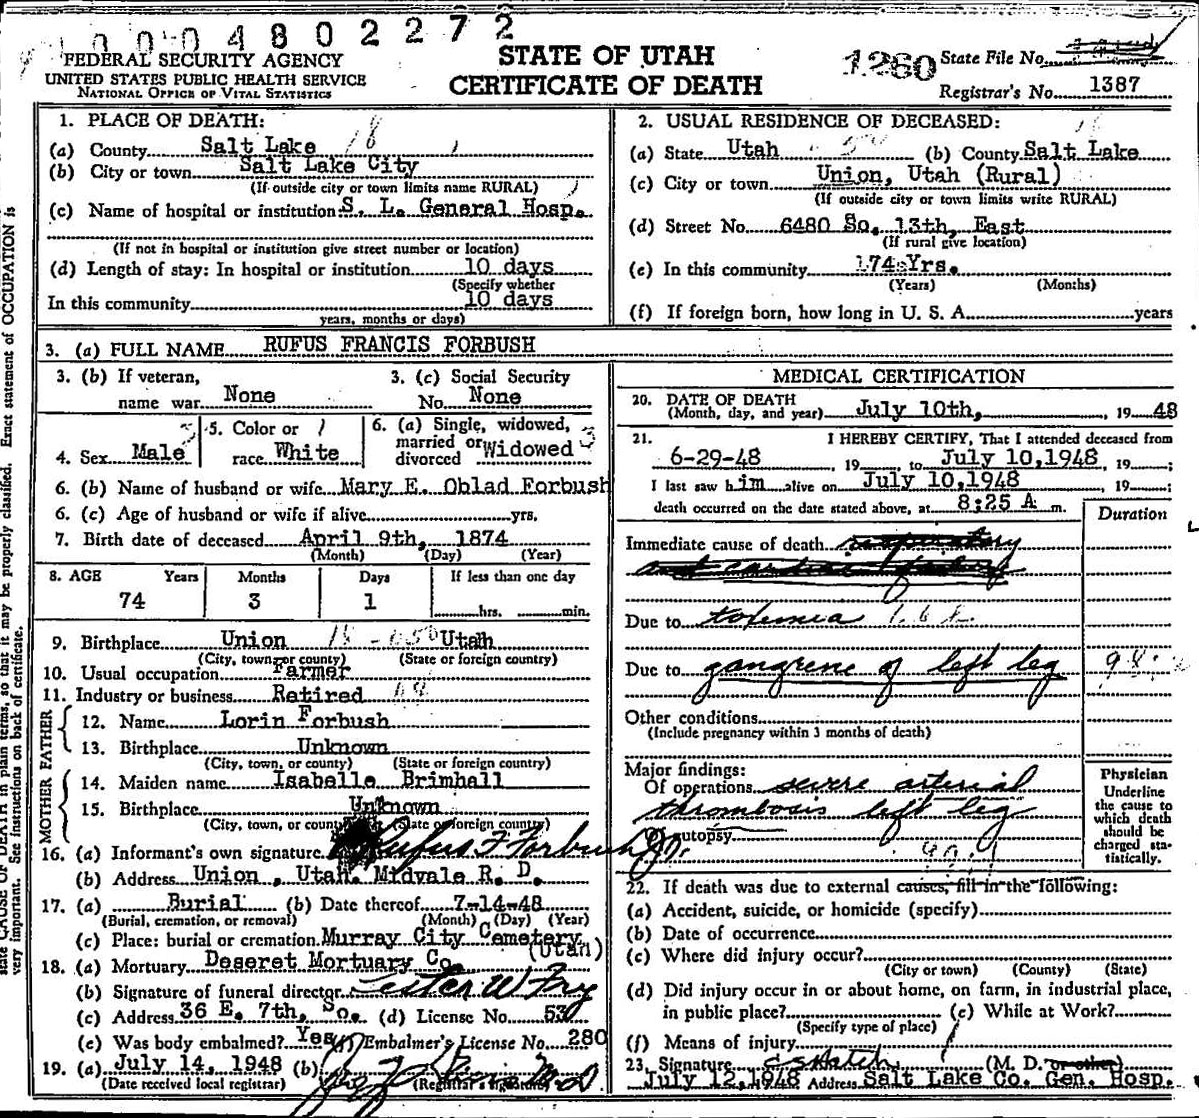 1 0 0 0 4 8 0 2 2 7 2
FEDERAL SECURITY AGENCY
UNITED STATES PUBLIC HEALTH SERVICE
NATIONAL OFFICE OF VITAL STATISTICS
STATE OF UTAH
CERTIFICATE OF DEATH
1260 State File No.
Registrar's No. 1387
1. PLACE OF DEATH:
(a) County Salt Lake 18 1
(b) City or town Salt Lake City
(If outside city or town limits name RURAL)
(c) Name of hospital or institution S. L. General Hosp.
(If not in hospital or institution give street number or location)
(d) Length of stay: In hospital or institution 10 days
(Specify whether
In this community 10 days
years, months or days)
2. USUAL RESIDENCE OF DECEASED:
(a) State Utah (b) County Salt Lake
(c) City or town Union, Utah (Rural)
(If outside city or town limits write RURAL)
(d) Street No. 6480 So. 13th, East
(If rural give location)
(e) In this community 74 Yrs.
(Years) (Months)
(f) If foreign born, how long in U. S. A. years
3. (a) FULL NAME RUFUS FRANCIS FORBUSH
3. (b) If veteran,
name war None
3. (c) Social Security
No. None
4. Sex Male
5. Color or
race White
6. (a) Single, widowed,
married or
divorced Widowed
6. (b) Name of husband or wife Mary E. Oblad Forbush
6. (c) Age of husband or wife if alive yrs.
7. Birth date of deceased April 9th, 1874
(Month) (Day) (Year)
8. AGE Years Months Days If less than one day
74 3 1 hrs. min.
9. Birthplace Union Utah
(City, town, or county) (State or foreign country)
10. Usual occupation Farmer
11. Industry or business Retired
FATHER
12. Name Lorin Forbush
13. Birthplace Unknown
(City, town, or county) (State or foreign country)
MOTHER
14. Maiden name Isabelle Brimhall
15. Birthplace Unknown
(City, town, or county) (State or foreign country)
16. (a) Informant's own signature Rufus F Forbush Jr.
(b) Address Union, Utah. Midvale R. D.
17. (a) Burial (b) Date thereof 7-14-48
(Burial, cremation, or removal) (Month) (Day) (Year)
(c) Place: burial or cremation Murray City Cemetery
(Utah)
18. (a) Mortuary Deseret Mortuary Co.
(b) Signature of funeral director Lester W Fry
(c) Address 36 E. 7th, So. (d) License No. 53
(e) Was body embalmed? Yes Embalmer's License No. 280
19. (a) July 14, 1948 (b)
(Date received local registrar) (Registrar's signature)
MEDICAL CERTIFICATION
20. DATE OF DEATH
(Month, day, and year) July 10th, , 19 48
21. I HEREBY CERTIFY, That I attended deceased from
6-29-48 , 19 to July 10,1948 , 19 ;
I last saw him alive on July 10,1948 , 19 ;
death occurred on the date stated above, at 8:25 A m.
Duration
Immediate cause of death respiratory
and cardiac failure
Due to toxemia
Due to gangrene of left leg
Other conditions
(Include pregnancy within 3 months of death)
Major findings:
Of operations severe arterial
thrombosis left leg
Of autopsy
Physician
Underline
the cause to
which death
should be
charged sta-
tistically.
22. If death was due to external causes, fill in the following:
(a) Accident, suicide, or homicide (specify)
(b) Date of occurrence
(c) Where did injury occur?
(City or town) (County) (State)
(d) Did injury occur in or about home, on farm, in industrial place,
in public place? (e) While at Work?
(Specify type of place)
(f) Means of injury
23. Signature (M. D. or other)
July 12,1948 Address Salt Lake Co. Gen. Hosp.
state CAUSE OF DEATH in plain terms, so that it may be properly classified. Exact statement of OCCUPATION is
very important. See instructions on back of certificate.